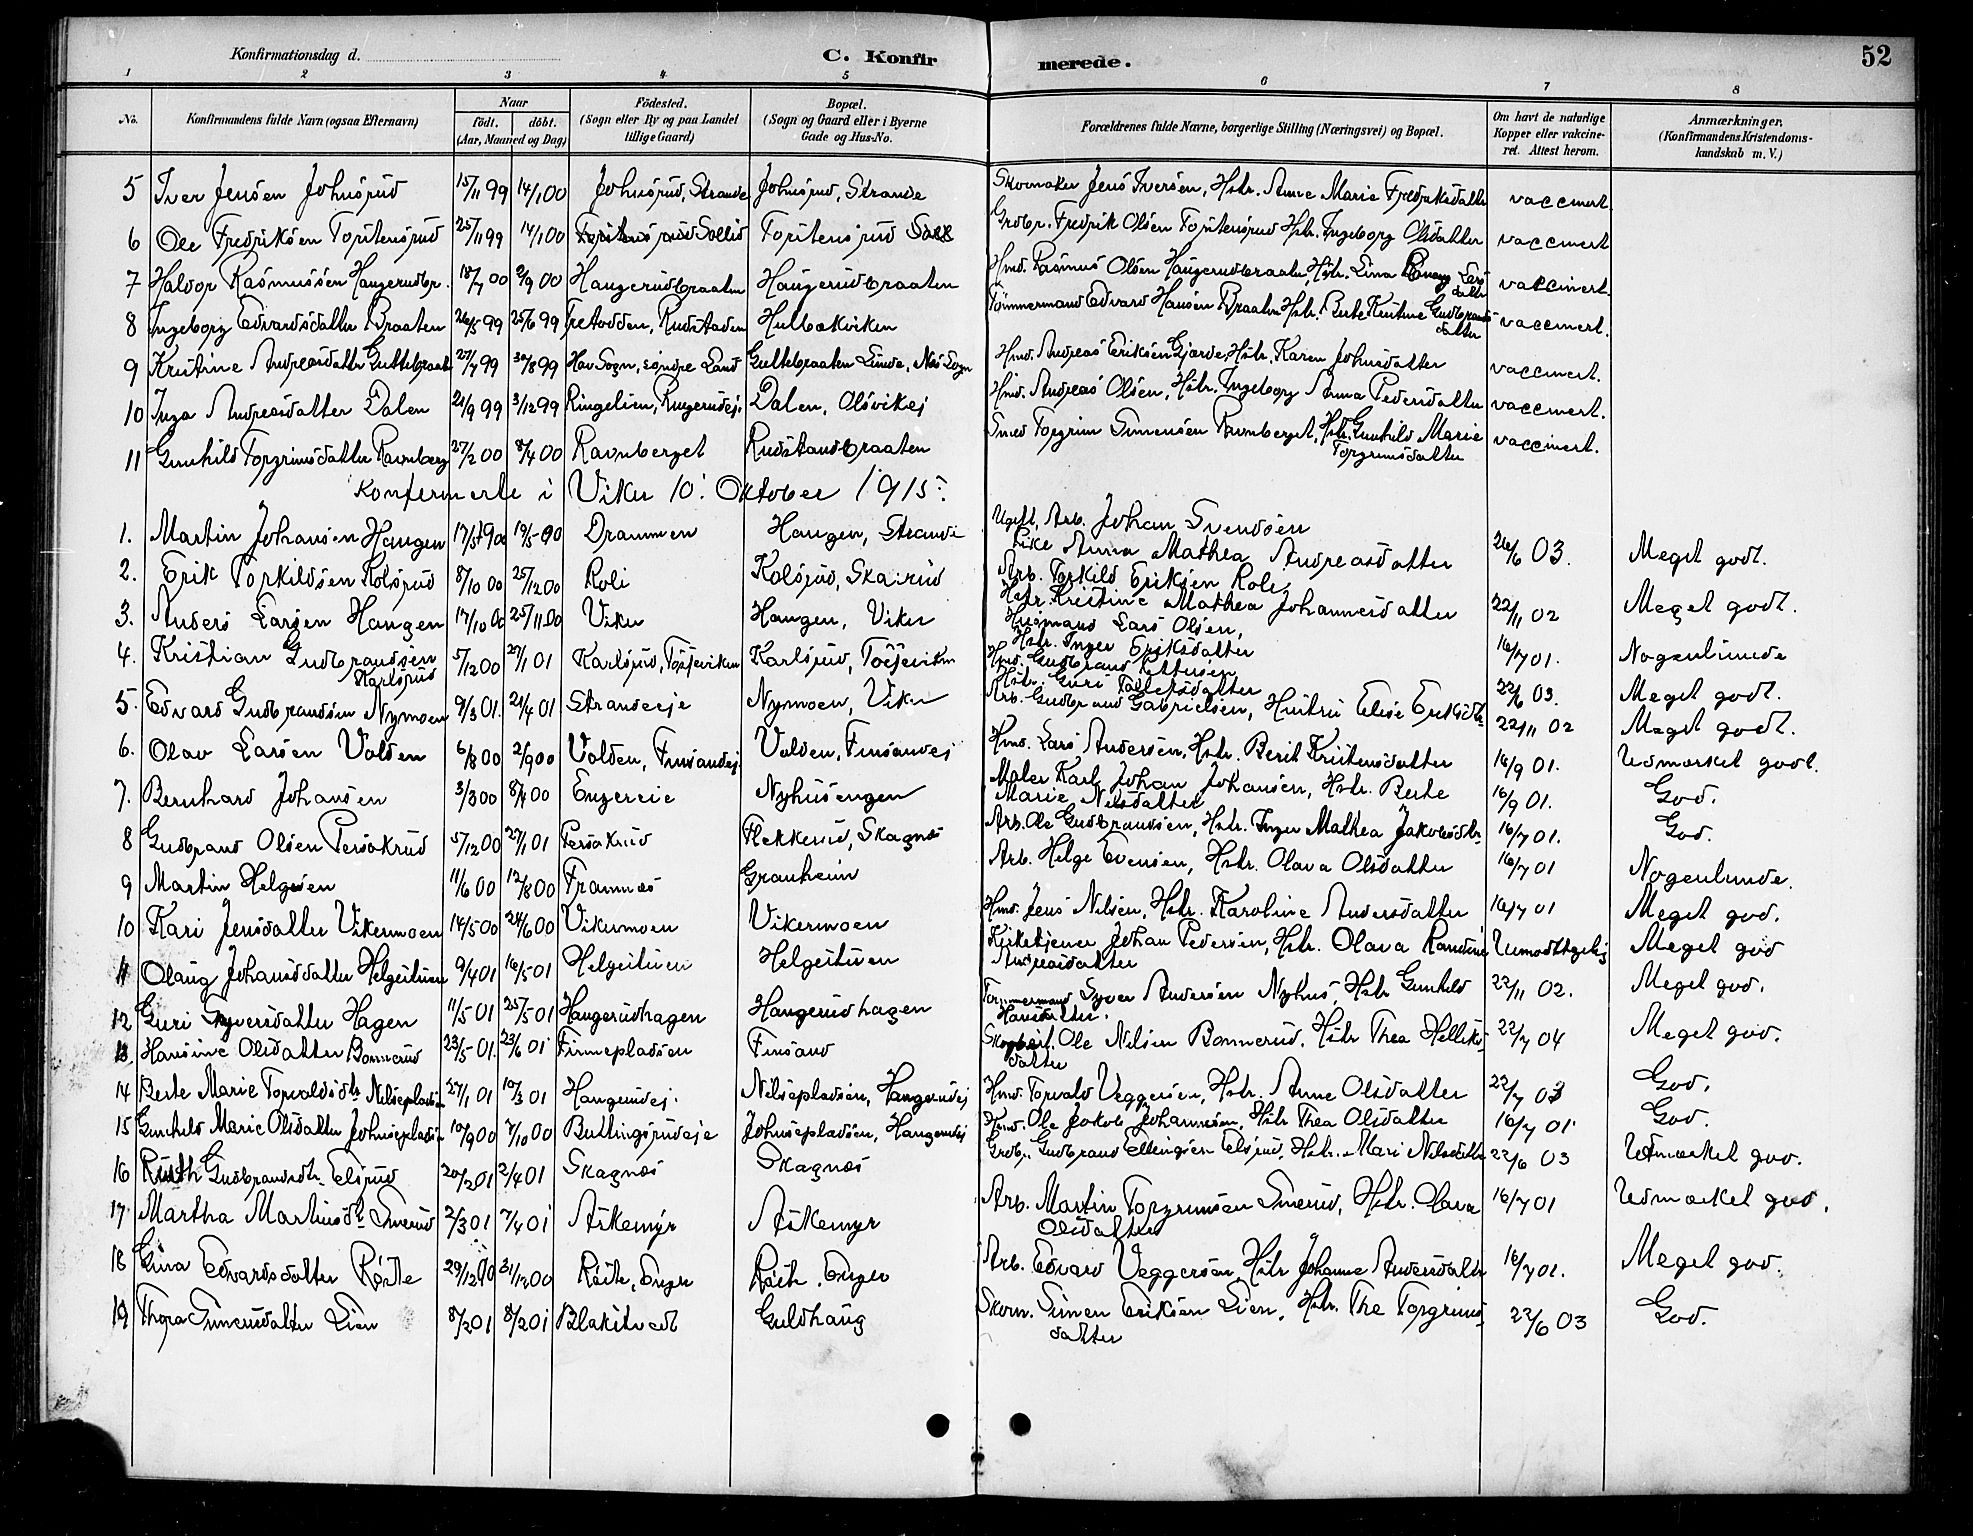 Konfirmationsdag d. C. Konfirmerede. 52
1 2 3 4 5 6 7 8
No. Konfirmandens fulde Navn (ogsaa Efternavn) Naar født. døbt. (Aar, Maaned og Dag) Födested. (Sogn eller By og paa Landet tillige Gaard) Bopæl. (Sogn og Gaard eller i Byerne Gade og Hus-No. Forældrenes fulde Navne, borgerlige Stilling (Næringsvei) og Bopæl. Om havt de naturlige Kopper eller vakcineret. Attest herom. Anmærkninger. (Konfirmandens Kristendomskundskab m. V.)
5 Iver Jensen Johnsrud 15/11 99 14/1 00 Johnsrud, Strande Johnsrud, Strande Skomaker Jens Iversen, Hstr. Anne Marie Fredriksdatter vaccinert
6 Ole Fredriksen Torstensrud 25/11 99 14/1 00 Torstensrud Sollid Torstensrud Grdbr. Fredrik Olsen Torstensrud Hstr. Ingeborg Olsdatter vaccinert
7 Halvor Rasmussen Haugerudbr. 18/7 00 2/9 00 Haugerudbraaten Haugerudbraaten Hmd. Rasmus Olsen Haugerudbraaten, Hstr. Lina Larsdatter vakcinert.
8 Ingeborg Edvardsdatter Braaten 26/5 99 25/6 99 Tretodden, Rudstaden Hulbækviken Tömmermand Edvard Hansen Braaten Hstr. Berte Kristine Gudbrandsdatter vaccinert.
9 Kristine Andreasdatter Guttebraate 27/7 99 30/8 99 Hov Sogn, söndre Land Guttebraaten Lunde, Nes Sogn Hmd. Andreas Eriksen Gjærde, Hstr. Karen Johnsdatter vaccinert.
10 Inga Andreasdatter Dalen 21/9 99 3/12 99 Ringelien, Ringerudej. Dalen, Olsvikej Hmd. Andreas Olsen, Hstr. Ingeborg Anna Pedersdatter vaccinert.
11 Gunhild Torgrimsdatter Ravnberg 27/2 00 8/4 00 Ravnberget Rudstandbraaten Smed Torgrim Simensen Ravnberget, Hstr. Gunhild Marie Torgrimsdatter vaccinert.
Konfirmerte i Viker 10. Oktober 1915.
1. Martin Johansen Haugen 17/5 1900 19/5-00 Drammen Haugen, Strande Ugift, Arb. Johan Svendsen
Pike Anna Mathea Andreasdatter 26/6 03. Meget godt.
2. Erik Torkildsen Kolsrud 8/10 00 25/12 00 Roli Kolsrud, Skarrud Arb. Torkild Eriksen Role,
Hstr. Kristine Mathea Johannesdatter 22/11 02 Meget godt.
3. Anders Larsen Haugen 17/10 00 25/11 00 Viker Haugen, Viker Husmand Lars Olsen,
Hstr. Inger Eriksdatter 16/7 01. Nogenlunde
4. Kristian Gudbrandsen Karlsrud 5/12 00 27/1 01 Karlsrud, Tosseviken Karlsrud, Tosseviken Hmd. Gudbrand Pettersen
Hstr. Guri Tollefsdatter 22/6 03. Meget godt.
5. Edvard Gudbrandsen Nymoen 9/3 01. 21/4 01 Strandeeje Nymoen, Viker Arb. Gudbrand Gabrielsen, Hustru Elise Eriksdtr 22/11 02 Meget godt.
6. Olav Larsen Volden 6/8 00 2/9 00 Volden, Finsandej. Volden, Finsandej Hmd. Lars Andersen, Hstr. Berit Kristensdatter 16/9 01. Udmærket godt.
7. Bernhard Johansen 3/3 00 8/4 00 Engereie Nyhusengen Maler Karl Johan Johansen, Hstr. Berte
Marie Nilsdatter 16/9 01. God.
8 Gudbrand Olsen Persökrud 5/12 00 27/1 01 Persökrud Flekkerud, Skagnes Arb. Ole Gudbrandsen, Hstr. Inger Mathea Jakobsdtr 16/7 01. God.
9 Martin Helgesen 11/6 00 12/8 00 Framnes Granheim Arb. Helge Evensen, Hstr. Olava Olsdatter 16/7 01 Nogenlunde.
10 Kari Jensdatter Vikermoen 14/5 00 24/6 00 Vikermoen Vikermoen Hmd. Jens Nilsen, Hstr. Karoline Andersdatter 16/7 01 Meget god.
11 Olaug Johansdatter Helgestuen 9/4 01 16/5 01 Helgestuen Helgestuen Kirketjener Johan Pedersen, Hstr. Olava Randine
Andreasdatter Umodtagelig Meget god
12 Guri Syversdatter Hagen 11/5 01 25/5 01 Haugerudhagen Haugerudhagen Tømmermand Syver Andersen Nyhus, Hstr Gunhild
Hansdatter. 22/11 02. Meget god.
13. Hansine Olsdatter Bonnerud 23/5-01. 23/6 01 Finnepladsen Finsand Ole Nilsen Bonnerud, Hstr Thea Helliksdatter 22/7 04 Meget god.
14 Berte Marie Torvaldsdtr Nilsepladsen 27/1 01 10/3 01 Haugerudej. Nilsepladsen, Haugerudej Hmd. Torvald Veggersen, Hstr. Anne Olsdatter 22/7 03 God.
15 Gunhild Marie Olsdatter Johnsepladsen 10/9 00 7/10 00 Buttingsrudeje Johnsepladsen, Haugerudej Hmd. Ole Jakob Johannesen, Hstr Thea Olsdatter 16/7 01 God.
16 Ruth Gudbrandsdtr Elsrud 20/2 01 2/4 01 Skagnes Skagnes Grdbr. Gudbrand Ellingsen Elsrud, Hstr. Mari Nilsdatter 22/6 03 Udmærket god.
17. Martha Martinsdtr Smerud 2/3 01 7/4 01 Askemyr Askemyr Arb. Martin Torgrimsen Smerud, Hstr. Olava
Olsdatter 16/7 01 Udmærket god.
18 Gina Edvardsdatter Røste 29/12 00 31/12 00 Røste, Enger Røste, Enger Arb. Edvard Veggersen, Hstr Johanne Andersdatter 16/7 01. Meget god.
19 Thora Simensdatter Lien 8/2 01 8/2 01 Blakstvedt Guldhaug Skom. Simen Eriksen Lien, Hstr. Thea Torgrimsdatter 22/6 03 God.